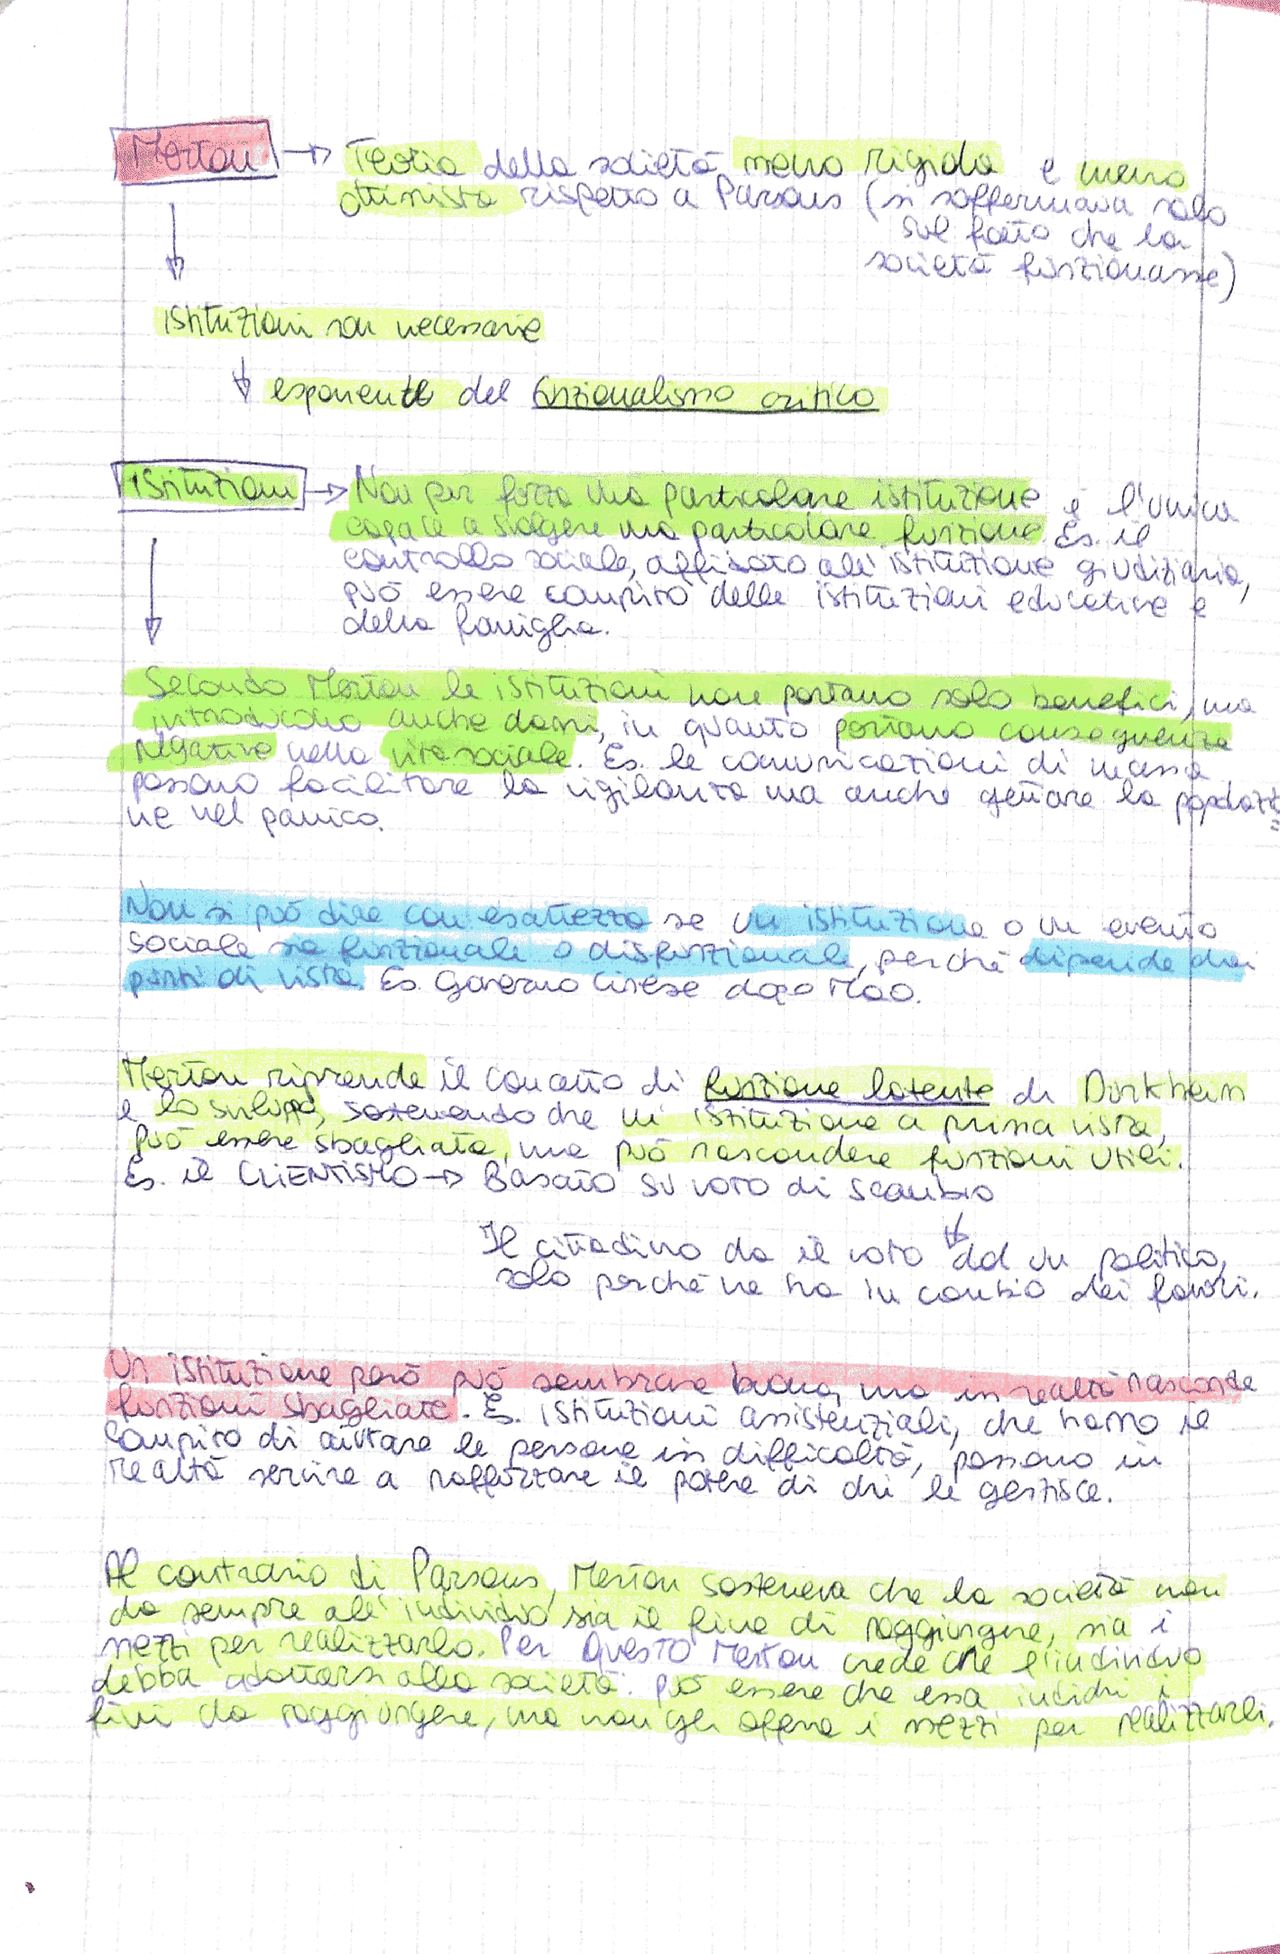 Merton → Teoria della società meno rigida e meno
ottimista rispetto a Parsons (si soffermava solo
sul fatto che la
società funzionasse)
↓
istituzioni son necessarie
↓ esponente del funzionalismo critico
Istituzioni → Non per forza una particolare istituzione è l'unica
capace a svolgere una particolare funzione. Es. il
controllo sociale, affidato all'istituzione giudiziaria,
può essere compito delle istituzioni educative e
della famiglia.
↓
Secondo Merton le istituzioni non portano solo benefici, ma
introducono anche danni, in quanto portano conseguenze
negative nella vita sociale. Es. le comunicazioni di massa
possono facilitare la vigilanza ma anche gettare la popolazio=
ne nel panico.
Non si può dire con esattezza se un istituzione o un evento
sociale sia funzionale o disfunzionale, perché dipende dai
punti di vista. Es. Governo Cinese dopo Mao.
Merton riprende il concetto di funzione latente di Durkheim
e lo sviluppa, sostenendo che un istituzione a prima vista,
può essere sbagliata, ma può nascondere funzioni utili.
Es. il CLIENTISMO → Basato su voto di scambio
↓
Il cittadino da il voto ad un politico,
solo perché ne ha in cambio dei favori.
Un istituzione però può sembrare buona, ma in realtà nasconde
funzioni sbagliate. Es. istituzioni assistenziali, che hanno il
compito di aiutare le persone in difficoltà, possono in
realtà servire a rafforzare il potere di chi le gestisce.
Al contrario di Parsons, Merton sosteneva che la società non
da sempre all'individuo sia il fine di raggiungere, sia i
mezzi per realizzarlo. Per questo Merton crede che l'individuo
debba adattarsi alla società. Può essere che essa indichi i
fini da raggiungere, ma non gli offra i mezzi per realizzarli.